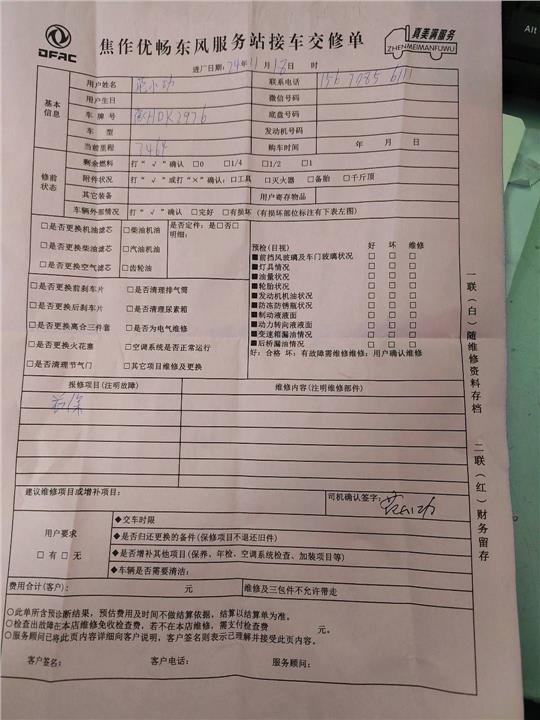 DFAC
焦作优畅东风服务站接车交修单
真美满服务
ZHENMEIMANFUWU
进厂日期: 24年 11月 18日 时
基本信息
用户姓名 小功 联系电话 156 7085 6111
用户生日 微信号码
车牌号 HDK2976 底盘号码
车型 发动机号码
当前里程 7464 购车时间 年 月 日
修前状态
剩余燃料 打“√”确认 □0 □1/4 □1/2 □1
附件状况 打“√”或打“×”确认:□工具 □灭火器 □备胎 □千斤顶
其它装备 用户寄存物品
车辆外部情况 打“√”确认 □完好 □有损坏(有损坏部位标注有下表左图)
□是否更换机油滤芯 □柴油机油 是否定件: 是□否□
明细:
□是否更换柴油滤芯 □汽油机油
□是否更换空气滤芯 □齿轮油
□是否更换前刹车片 □是否清理排气筒
□是否更换后刹车片 □是否清理尿素箱
□是否更换离合三件套 □是否为电气维修
□是否更换火花塞 □空调系统是否正常运行
□是否清理节气门 □其它项目维修及更换
预检(目视) 好 坏 维修
■前挡风玻璃及车门玻璃状况 □ □ □
■灯具情况 □ □ □
■油量状况 □ □ □
■轮胎状况 □ □ □
■发动机机油状况 □ □ □
■防冻防锈瓶状况 □ □ □
■制动液液面 □ □ □
■动力转向液液面 □ □ □
■变速箱漏油情况 □ □ □
■后桥漏油情况 □ □ □
好:合格 坏:有故障需维修维修:用户确认维修
报修项目(注明故障) 维修内容(注明维修部件)
首保
建议维修项目或增补项目:
司机确认签字: 小功
用户要求
□有 □无
◆交车时限
◆是否归还更换的备件(保修项目不退还旧件)
◆是否增补其他项目(保养、年检、空调系统检查、加装项目等)
◆车辆是否需要清洁:
费用合计(客户): 元 维修及三包件不允许带走
○此单所含预诊断结果,预估费用及时间不做结算依据,结算以结算单为准。
○检查出故障在本店维修免收检查费,若不在本店维修,需支付检查费 元。
○服务顾问已将此页内容详细向客户说明,客户签名则表示已理解并接受此页内容。
客户签名: 客户电话: 服务顾问:
一联(白)随维修资料存档 二联(红)财务留存
Alt